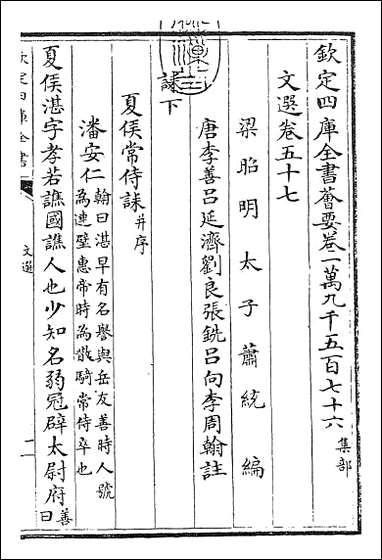 欽定四庫全書薈要卷一萬九千五百七十六 集部
文選卷五十七
梁昭明太子蕭統編
唐李善呂延濟劉良張銑呂向李周翰註
誄下
夏侯常侍誄并序
潘安仁 翰曰湛早有名譽與岳友善時人號
為連璧惠帝時為散騎常侍卒也
夏侯湛字孝若譙國譙人也少知名弱冠辟太尉府 善
曰
欽定四庫全書
文選
一